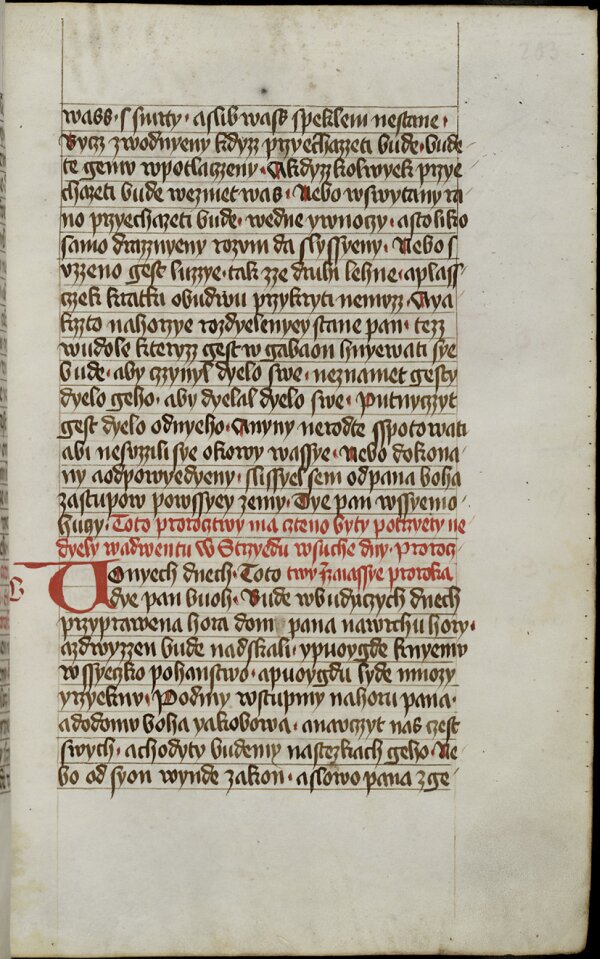 283
wass · s smrty · aslib wass speklem nestane ·
Bycz zwodnyeny kdyzz przyechazeti bude · bude
te gemu wpotlaczeny · Akdyzz kolwyek przye
chazeti bude wezmet was · Nebo wswytany ra
no przyechazeti bude · wedne ywnoczy · astoliko
samo drazznyeny rozum da slyssyeny · Nebo s
vzzeno gest luzzye · tak zze druhi lehne · aplass
czek kratki obudwu przykryti nemuzz · Aya
kzzto nahorzye rozdyelenyey stane pan · tezz
wudole kteryzz gest w gabaon hnyewati sye
bude · aby czynyl dyelo swe · neznamet gesty
dyelo geho · aby dyelal dyelo swe · Putnyczyt
gest dyelo odnyeho · Anyny nerodte sspotowati
abi nesuzzili sye okowy wassye · Nebo dokona
ny aodpowyedyeny · slissyel sem odpana boha
zastupow powssyey zemy · Tye pan wssyemo
huczy · Toto proroctwy ma czteno byty potrzety ne
dyely wadwentu W Strzyedu wsuche dny · Proroc
Wonyech dnech · Toto twy yzaiassye proroka
dye pan buoh · Bude wbuduczych dnech
przyprawena hora dom pana nawrchu hory ·
azdwyzzen bude nadskali · ypuoygde knyemu
wssyeczko pohanstwo · apuoygdu lyde mnozy
yrzyeknu · Podmy wstupmy nahoru pana ·
adodomu boha yakobowa · anauczyt nas czest
swych · achodyty budemy nastezkach geho · Ne
bo od syon wynde zakon · aslowo pana zge